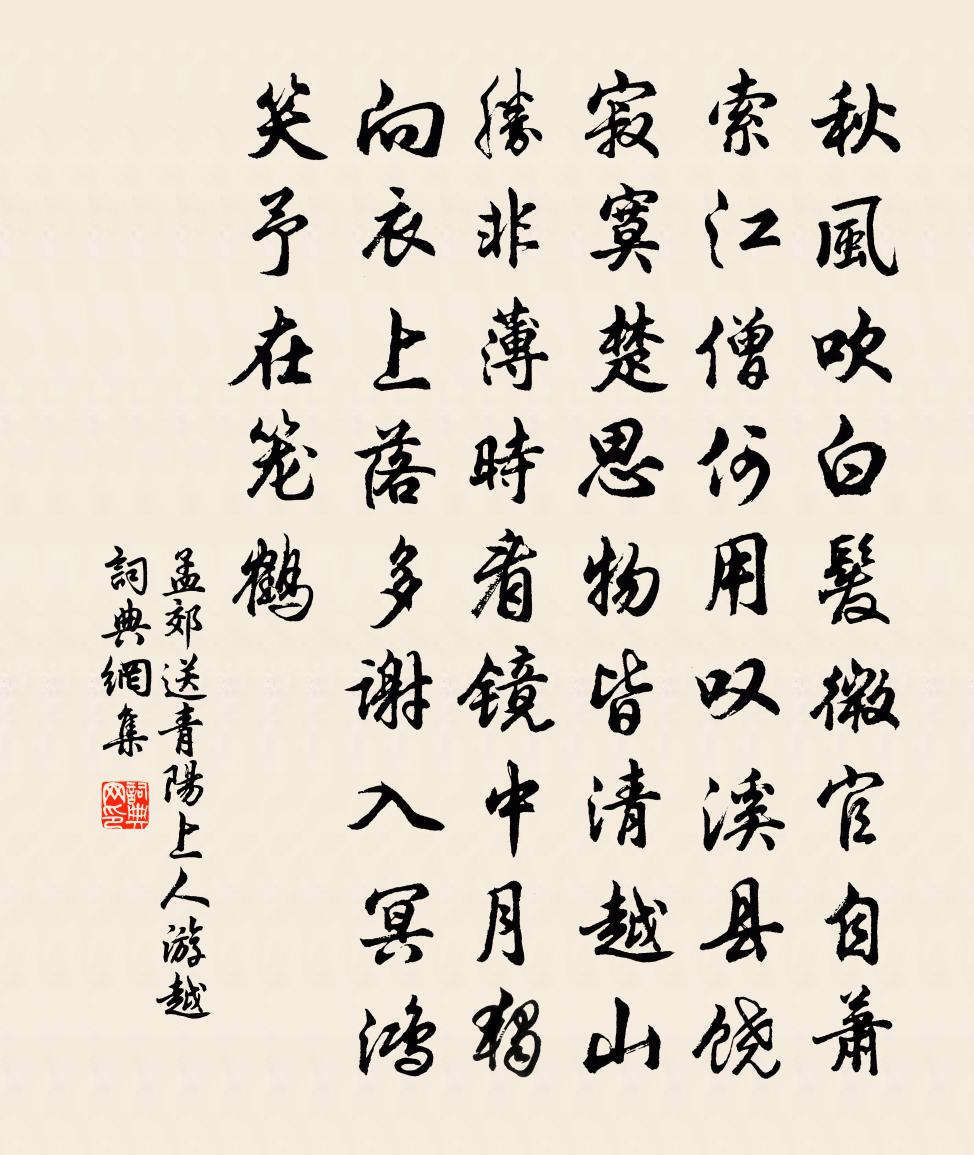 秋風吹白髮微官自蕭
索江僧何用叹溪县饶
寂寞楚思物皆清越山
勝非薄時看镜中月獨
向衣上落多謝入冥鸿
笑予在笼鶴
孟郊送青陽上人游越
詞典網集
詞典网印